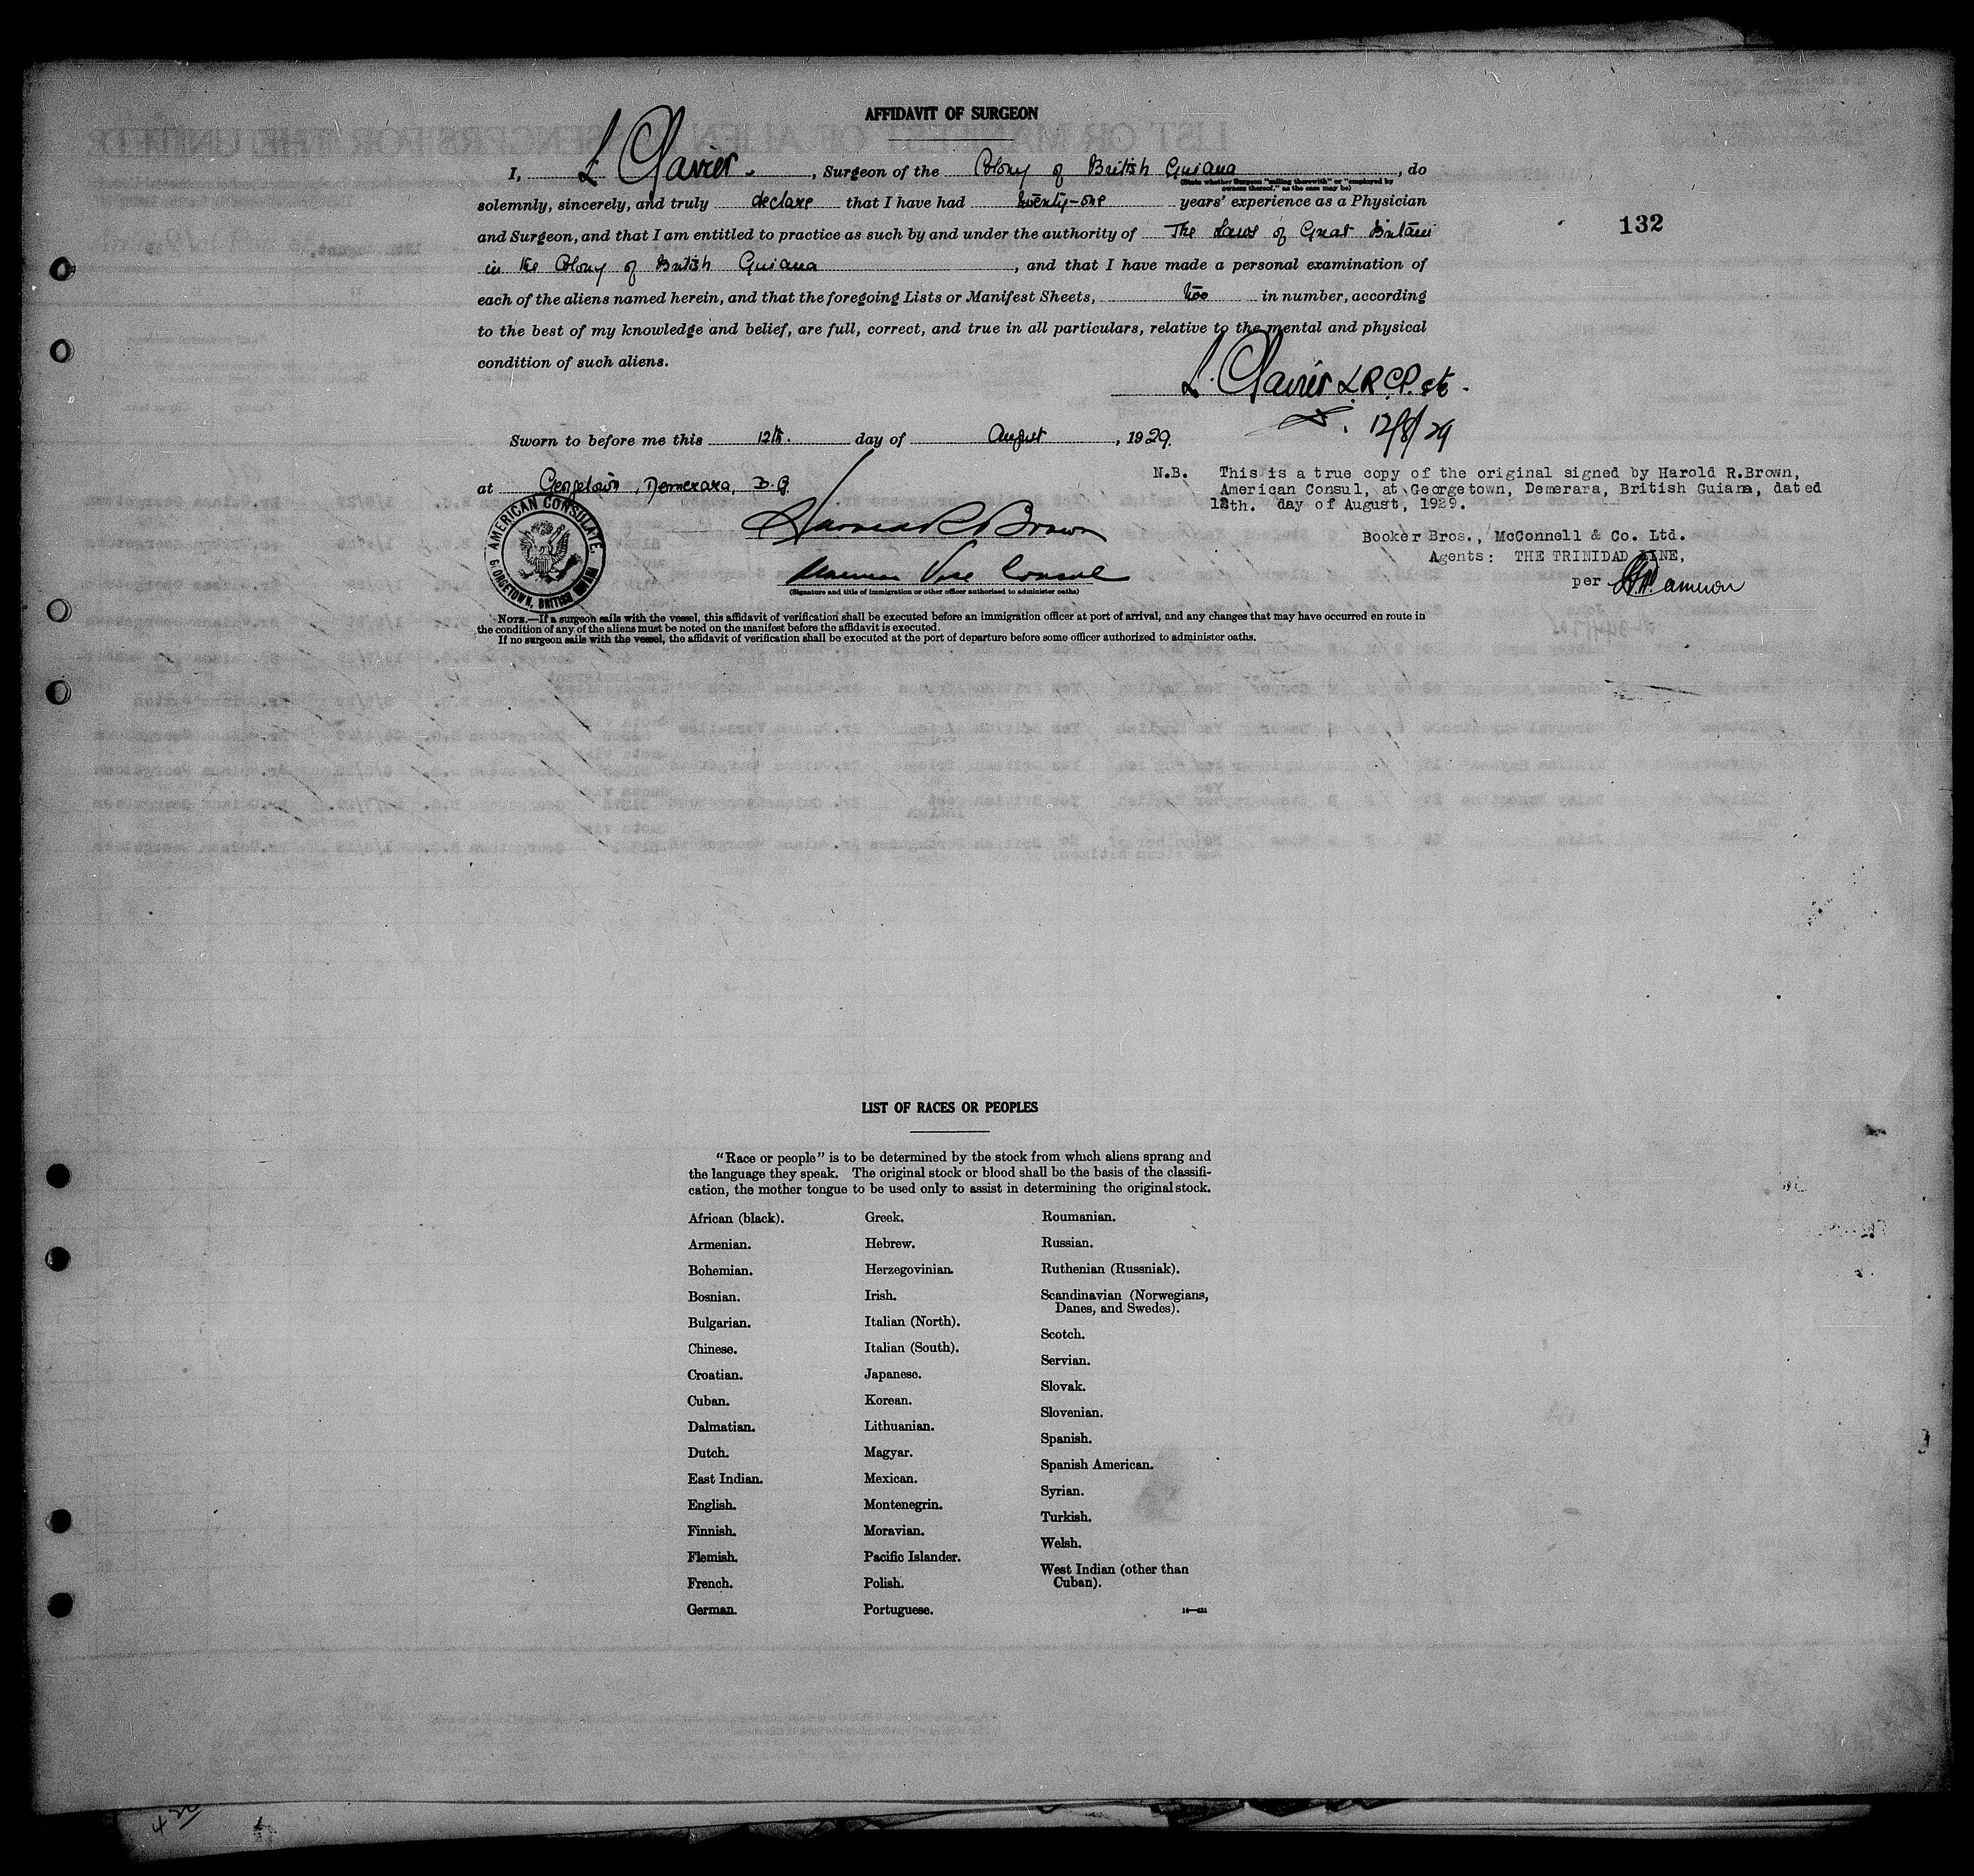 AFFIDAVIT OF SURGEON
I, L. Clavier, Surgeon of the Colony of British Guiana, do
(State whether Surgeon "sailing therewith" or "employed by owners thereof," as the case may be)
solemnly, sincerely, and truly declare that I have had twenty-one years' experience as a Physician
132
and Surgeon, and that I am entitled to practice as such by and under the authority of The Laws of Great Britain
in the Colony of British Guiana, and that I have made a personal examination of
each of the aliens named herein, and that the foregoing Lists or Manifest Sheets, two in number, according
to the best of my knowledge and belief, are full, correct, and true in all particulars, relative to the mental and physical
condition of such aliens.
L. Clavier L.R.C.P. etc.
12/8/29
Sworn to before me this 12th. day of August, 1929.
at Georgetown, Demerara, B.G.
N.B. This is a true copy of the original signed by Harold R.Brown,
American Consul, at Georgetown, Demerara, British Guiana, dated
12th. day of August, 1929.
AMERICAN CONSULATE, GEORGETOWN, BRITISH GUIANA
Brown
Vice Consul
(Signature and title of immigration or other officer authorized to administer oaths)
Booker Bros., McConnell & Co. Ltd.
Agents: THE TRINIDAD LINE,
per
NOTE.—If a surgeon sails with the vessel, this affidavit of verification shall be executed before an immigration officer at port of arrival, and any changes that may have occurred en route in
the condition of any of the aliens must be noted on the manifest before the affidavit is executed.
If no surgeon sails with the vessel, the affidavit of verification shall be executed at the port of departure before some officer authorized to administer oaths.
LIST OF RACES OR PEOPLES
"Race or people" is to be determined by the stock from which aliens sprang and
the language they speak. The original stock or blood shall be the basis of the classifi-
cation, the mother tongue to be used only to assist in determining the original stock.
African (black).
Armenian.
Bohemian.
Bosnian.
Bulgarian.
Chinese.
Croatian.
Cuban.
Dalmatian.
Dutch.
East Indian.
English.
Finnish.
Flemish.
French.
German.
Greek.
Hebrew.
Herzegovinian.
Irish.
Italian (North).
Italian (South).
Japanese.
Korean.
Lithuanian.
Magyar.
Mexican.
Montenegrin.
Moravian.
Pacific Islander.
Polish.
Portuguese.
Roumanian.
Russian.
Ruthenian (Russniak).
Scandinavian (Norwegians,
Danes, and Swedes).
Scotch.
Servian.
Slovak.
Slovenian.
Spanish.
Spanish American.
Syrian.
Turkish.
Welsh.
West Indian (other than
Cuban).